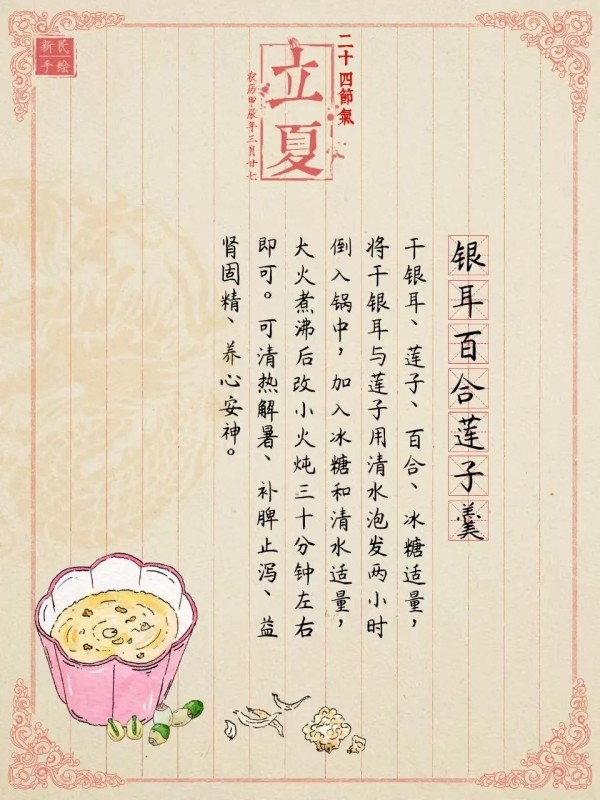 新氏
手绘
二十四節氣
立夏
农历甲辰年三月廿七
银耳百合莲子羹
干银耳、莲子、百合、冰糖适量，
将干银耳与莲子用清水泡发两小时
倒入锅中，加入冰糖和清水适量，
大火煮沸后改小火炖三十分钟左右
即可。可清热解暑、补脾止泻、益
肾固精、养心安神。